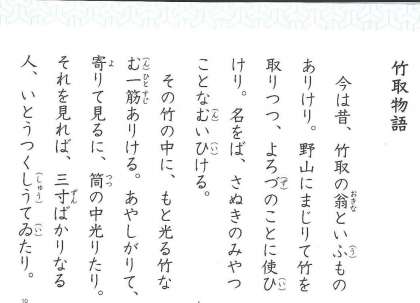 竹取物語
今は昔、竹取の翁といふもの
ありけり。野山にまじりて竹を
取りつつ、よろづのことに使ひ
けり。名をば、さぬきのみやつ
ことなむいひける。
その竹の中に、もと光る竹な
む一筋ありける。あやしがりて、
寄りて見るに、筒の中光りたり。
それを見れば、三寸ばかりなる
人、いとうつくしうてゐたり。
おきな
(う)
(ず)
(い)
(ん)
(い)
(ん)
ひと
すじ
よ
つつ
ずん
(しゅう)
(い)